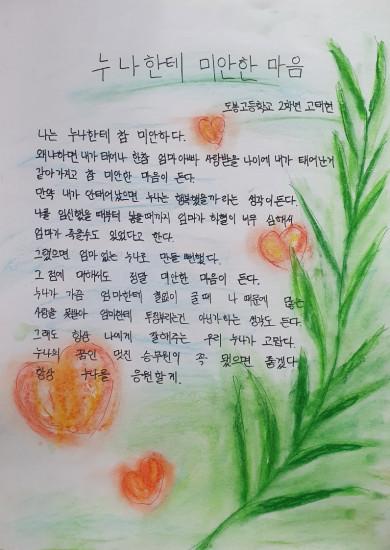 누나한테 미안한 마음
도봉고등학교 2학년 고태현
나는 누나한테 참 미안하다.
왜냐하면 내가 태어나 한참 엄마 아빠 사랑받을 나이에 내가 태어난거
같아가지고 참 미안한 마음이 든다.
만약 내가 안태어났으면 누나는 행복했을까 라는 생각이 든다.
나를 임신했을 때부터 낳을때까지 엄마가 하혈이 너무 심해서
엄마가 죽을수도 있었다고 한다.
그랬으면 엄마 없는 누나로 만들 뻔했다.
그 점에 대해서도 정말 미안한 마음이 든다.
누나가 가끔 엄마한테 철없이 굴 때 나 때문에 많은
사랑을 못받아 엄마한테 투정부리는건 아닌가하는 생각도 든다.
그래도 항상 나에게 잘해주는 우리 누나가 고맙다.
누나의 꿈인 멋진 승무원이 꼭 됐으면 좋겠다.
항상 누나를 응원할게.